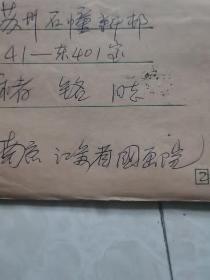 苏州石幢新邨
41—东401室
褚 铭 同志
南京 江苏省國画院
2